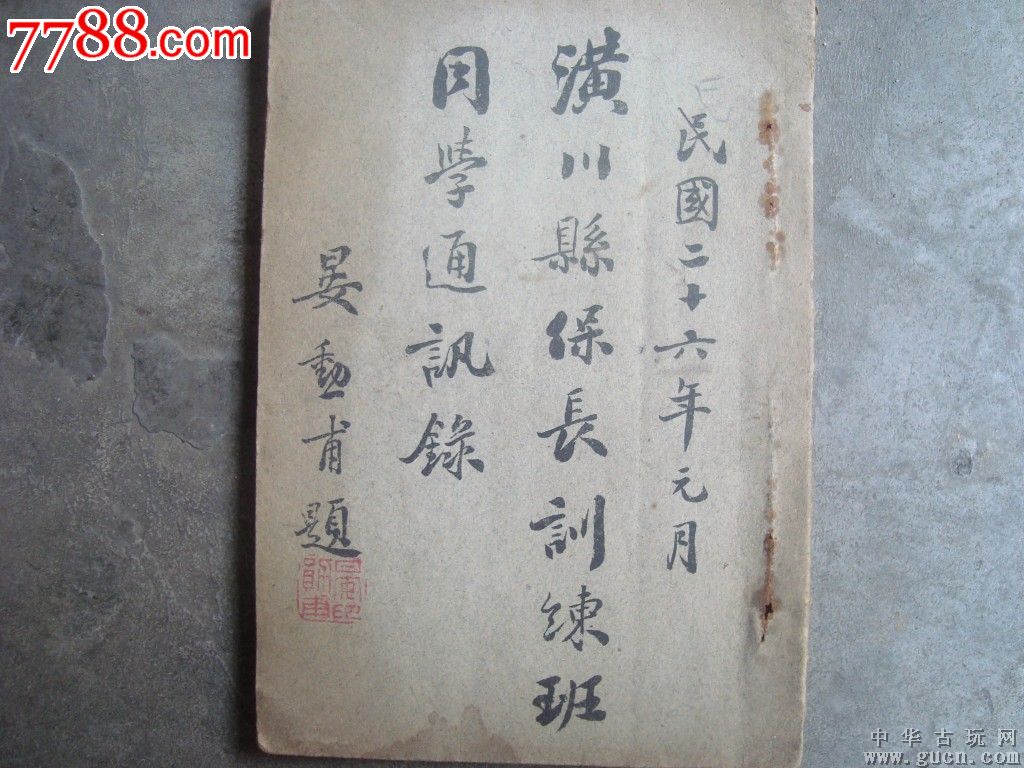 7788.com
民國二十六年元月
潢川縣保長訓練班
同學通訊錄
晏勳甫題
中华古玩网
www.gucn.com